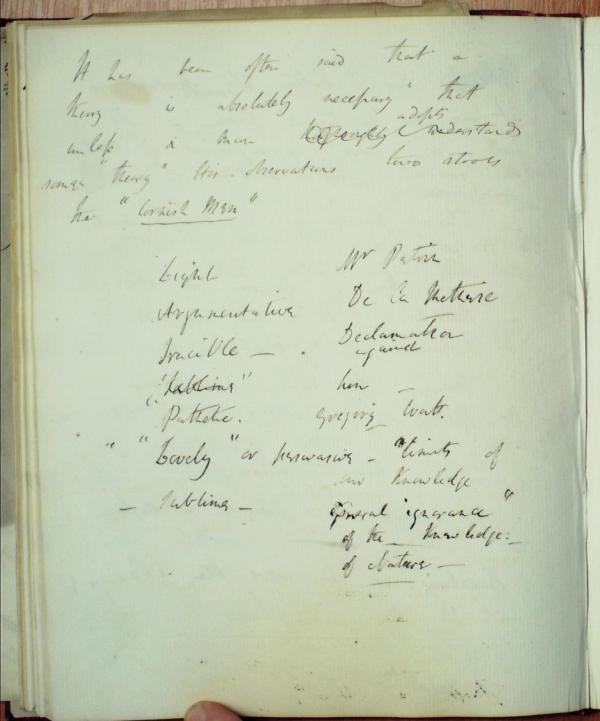 It has been often said that a
theory is absolutely necessary" that
unless a man adopts understands
some "theory" his observations two stools
the "Cornish Men"
Light Mr
Argumentative De la Metherie
Irascible — Declamation
against
"Sublime" him —
Pathetic. Gregory Watt.
" "Lovely" or persuasive — "limits of
our Knowledge
— Sublime — general ignorance"
of the Knowledge:—
of Nature —